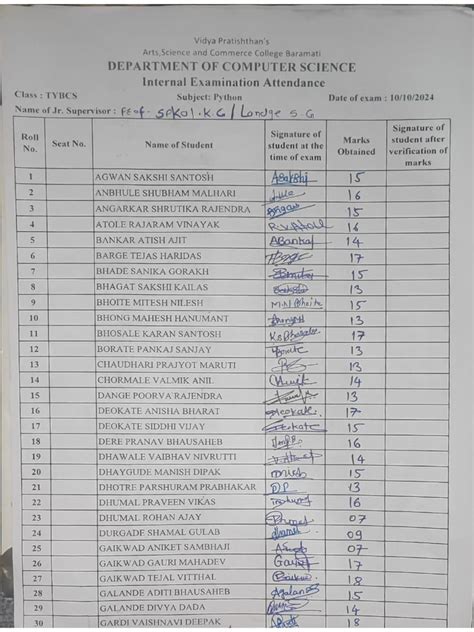 Vidya Pratishthan's
Arts,Science and Commerce College Baramati
DEPARTMENT OF COMPUTER SCIENCE
Internal Examination Attendance
Class : TYBCS Subject: Python Date of exam : 10/10/2024
Name of Jr. Supervisor : Prof. K.G / Londge S G
Roll No. Seat No. Name of Student Signature of student at the time of exam Marks Obtained Signature of student after verification of marks
1 AGWAN SAKSHI SANTOSH Asakshi 15
2 ANBHULE SHUBHAM MALHARI 16
3 ANGARKAR SHRUTIKA RAJENDRA 15
4 ATOLE RAJARAM VINAYAK R.V.Atole 16
5 BANKAR ATISH AJIT ABankar 14
6 BARGE TEJAS HARIDAS 17
7 BHADE SANIKA GORAKH 15
8 BHAGAT SAKSHI KAILAS 13
9 BHOITE MITESH NILESH M.N.Bhoite 15
10 BHONG MAHESH HANUMANT 13
11 BHOSALE KARAN SANTOSH 17
12 BORATE PANKAJ SANJAY 13
13 CHAUDHARI PRAJYOT MARUTI 13
14 CHORMALE VALMIK ANIL 14
15 DANGE POORVA RAJENDRA 13
16 DEOKATE ANISHA BHARAT Deokate 17
17 DEOKATE SIDDHI VIJAY 15
18 DERE PRANAV BHAUSAHEB 16
19 DHAWALE VAIBHAV NIVRUTTI 14
20 DHAYGUDE MANISH DIPAK 15
21 DHOTRE PARSHURAM PRABHAKAR DP 13
22 DHUMAL PRAVEEN VIKAS 16
23 DHUMAL ROHAN AJAY 07
24 DURGADE SHAMAL GULAB 09
25 GAIKWAD ANIKET SAMBHAJI 07
26 GAIKWAD GAURI MAHADEV 17
27 GAIKWAD TEJAL VITTHAL 18
28 GALANDE ADITI BHAUSAHEB 15
29 GALANDE DIVYA DADA 14
30 GARDI VAISHNAVI DEEPAK 18